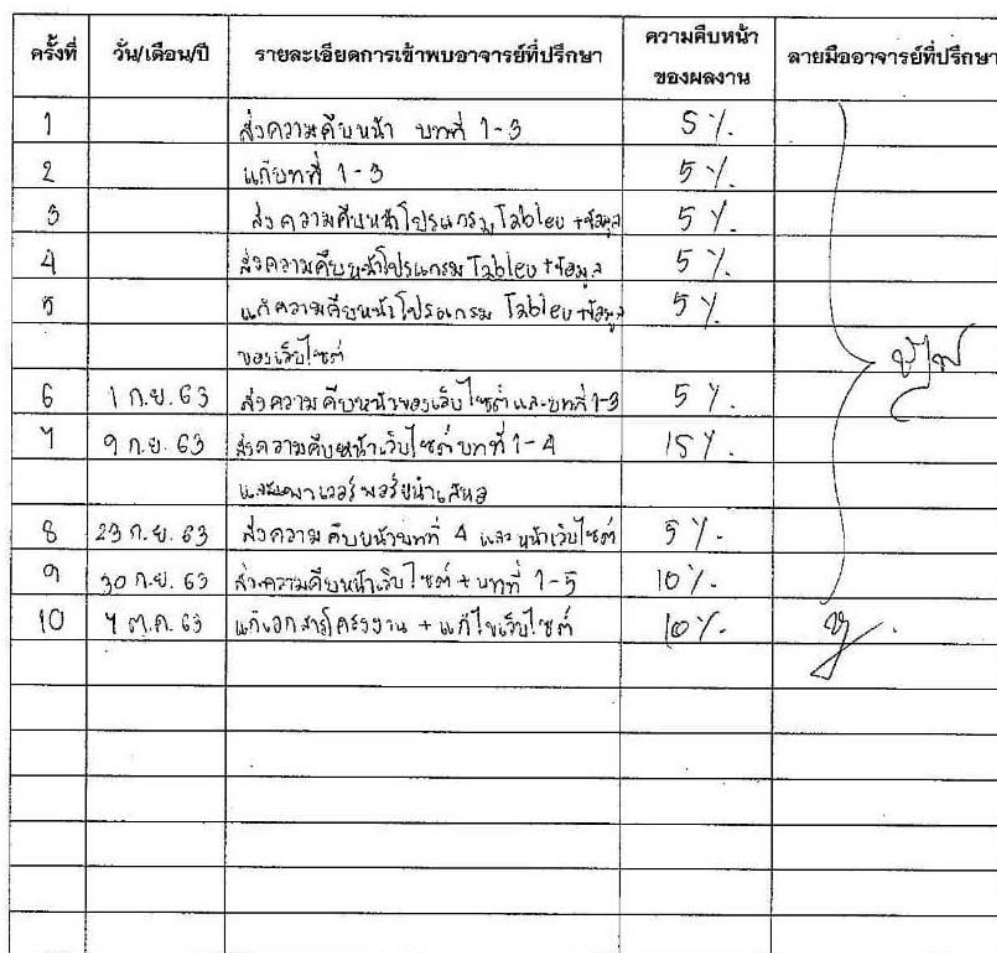 ครั้งที่ วัน/เดือน/ปี รายละเอียดการเข้าพบอาจารย์ที่ปรึกษา ความคืบหน้า ของผลงาน ลายมืออาจารย์ที่ปรึกษา
1 ส่งความคืบหน้า บทที่ 1-3 5 %.
2 แก้บทที่ 1-3 5 %.
3 ส่งความคืบหน้าโปรแกรม Tableu +ข้อมูล 5 %.
4 ส่งความคืบหน้าโปรแกรม Tableu +ข้อมูล 5 %.
5 แก้ความคืบหน้าโปรแกรม Tableu +ข้อมูล 5 %.
ของเว็บไซต์
6 1 ก.ย. 63 ส่งความคืบหน้าของเว็บไซต์ และบทที่ 1-3 5 %.
7 9 ก.ย. 63 ส่งความคืบหน้าเว็บไซต์ บทที่ 1-4 15 %.
และพาเวอร์พอร์ยนำเสนอ
8 23 ก.ย. 63 ส่งความคืบหน้าบทที่ 4 และ หน้าเว็บไซต์ 5 %.
9 30 ก.ย. 63 ส่งความคืบหน้าเว็บไซต์ + บทที่ 1-5 10 %.
10 7 ต.ค. 63 แก้เอกสารโครงงาน + แก้ไขเว็บไซต์ 10 %.